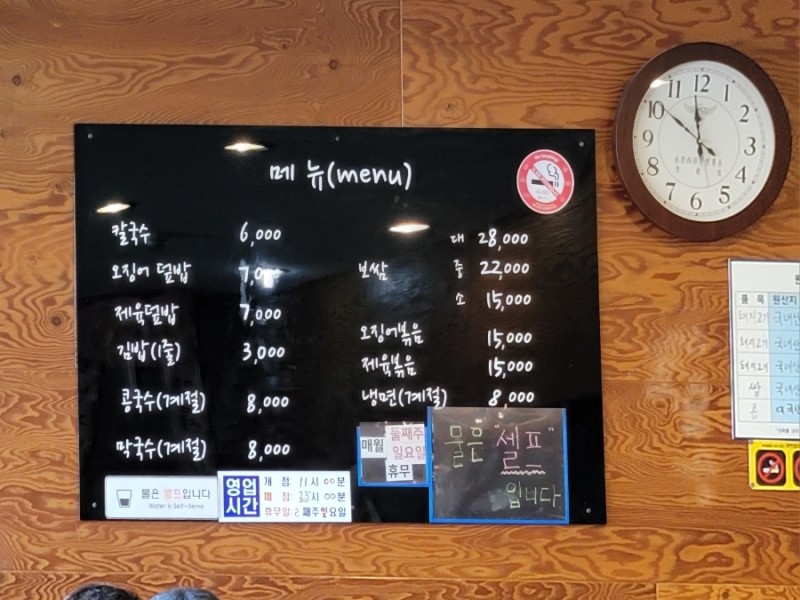 메뉴(menu)
칼국수 6,000
오징어 덮밥
제육덮밥 7,000
김밥(1줄) 3,000
콩국수(계절) 8,000
막국수(계절) 8,000
대 28,000
보쌈 중 22,000
소 15,000
오징어볶음 15,000
제육볶음 15,000
냉면(계절) 8,000
매월 둘째주
일요일
휴무
물은 "셀프"
입니다
물은 셀프입니다
Water is Self-Serve
영업
시간
개 점: 11시 00분
폐 점: 시 00분
휴무일: 2째주일요일
11 12 1 2 3 4 5 6 7 8 9 10
품 목 원산지
돼지고기 국내산
돼지고기 국내산
돼지고기 국내산
쌀 국내산